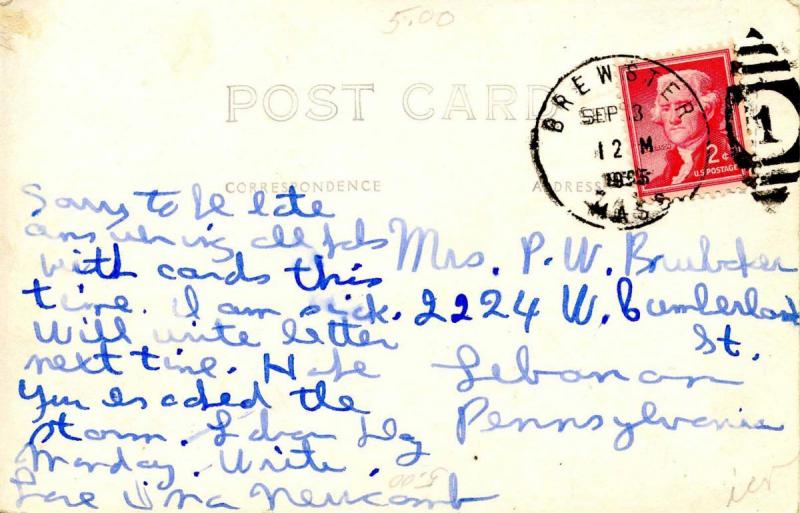 5.00
POST CARD
CORRESPONDENCE
ADDRESS
BREWSTER
SEP 3
12 M
1955
MASS
1
2¢
U.S. POSTAGE
Sorry to be late
answering all
with cards this
time. I am sick.
Will write letter
next time. Hope
you escaped the
storm. Labor Dy
Monday. Write.
Love Newcomb
Mrs. P. W. Brubaker
2224 W. Cumberland
St.
Lebanon
Pennsylvania
5.00